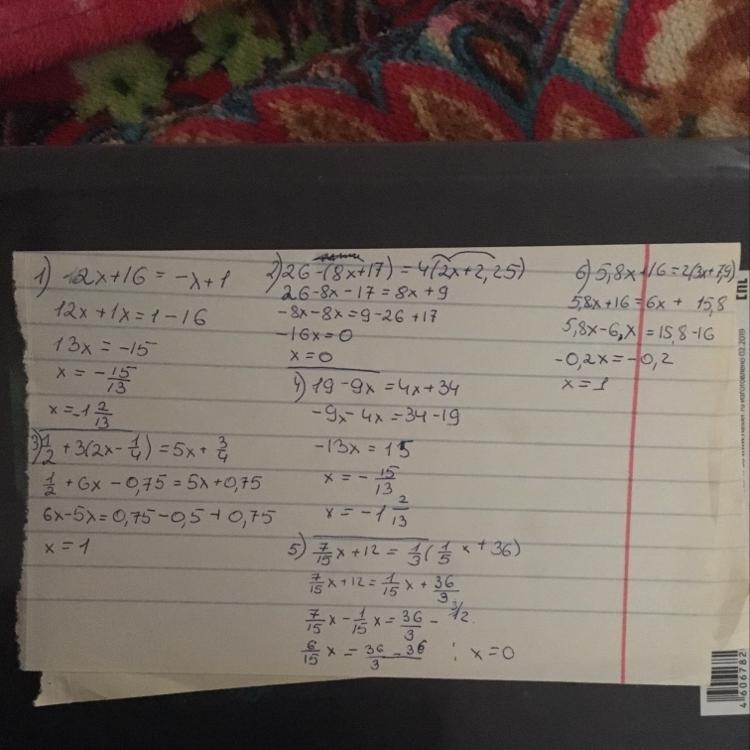 1) 12x+16 = -x+1
12x+1x=1-16
13x = -15
x = -15/13
x=-1 2/13
3) 1/2 + 3(2x - 1/4) = 5x + 3/4
1/2 + 6x - 0,75 = 5x+0,75
6x-5x=0,75-0,5+0,75
x = 1
2) 26-(8x+17) = 4(2x+2,25)
26-8x-17=8x+9
-8x-8x=9-26+17
-16x=0
x=0
4) 19-9x=4x+34
-9x-4x=34-19
-13x=15
x = -15/13
x = -1 2/13
5) 7/15 x+12 = 1/3(1/5 x + 36)
7/15 x+12=1/15 x+36/3
7/15 x - 1/15 x = 36/3 - 12
6/15 x = 36-36/3 ; x=0
6) 5,8x+16=2(3x+7,9)
5,8x+16=6x+ 15,8
5,8x-6x=15,8-16
-0,2x=-0,2
x=1
4 606782